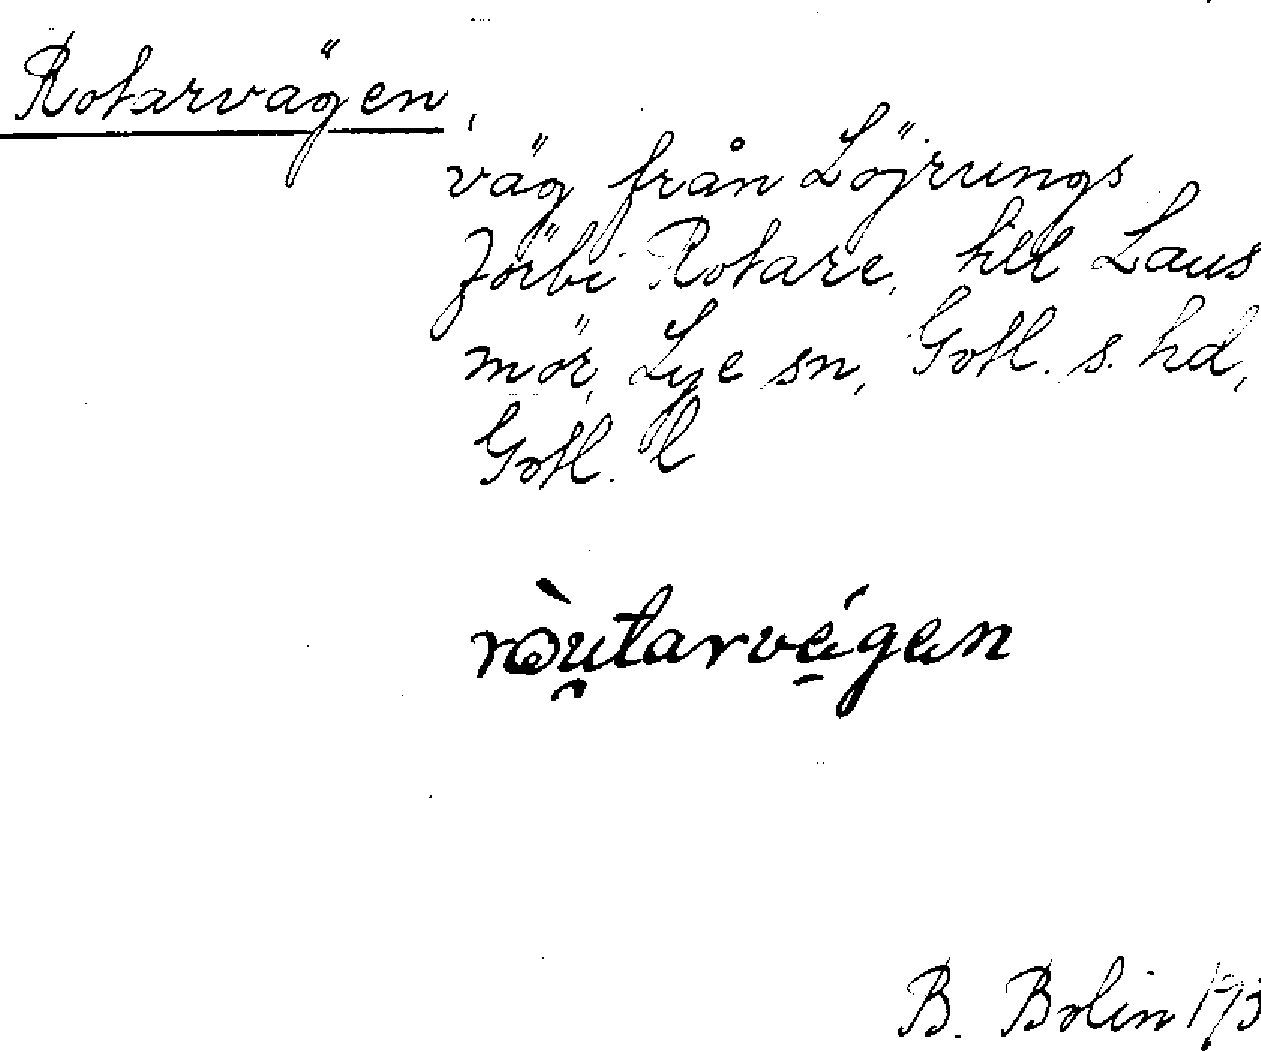 Rotarvägen,
väg från Löjrungs
förbi Rotare, till Laus
mör, Lye sn, Gotl. s. hd,
Gotl. l
ròu̯tarvé̠gen
B. Bolin 193